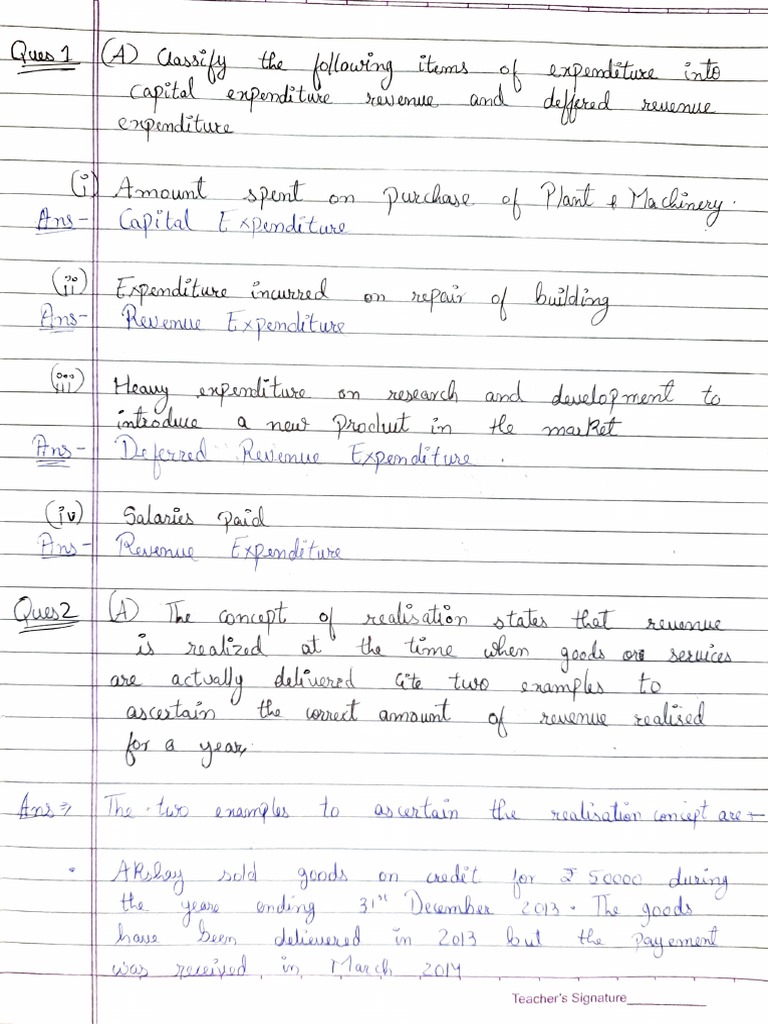 Ques 1 (A) Classify the following items of expenditure into
capital expenditure revenue and deffered revenue
expenditure
(i) Amount spent on purchase of Plant & Machinery.
Ans- Capital Expenditure
(ii) Expenditure incurred on repair of building
Ans- Revenue Expenditure
(iii) Heavy expenditure on research and development to
introduce a new product in the market
Ans- Deferred Revenue Expenditure .
(iv) Salaries paid
Ans- Revenue Expenditure
Ques2 (A) The concept of realisation states that revenue
is realized at the time when goods or services
are actually delivered Cite two examples to
ascertain the correct amount of revenue realised
for a year.
Ans⇒ The two examples to ascertain the realisation concept are÷
• Akshay sold goods on credit for ₹ 50000 during
the years ending 31st December 2013. The goods
have been delievered in 2013 but the payement
was received in March 2014
Teacher's Signature